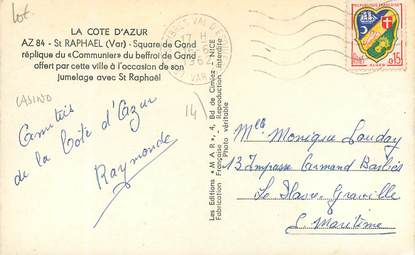 Lot
LA COTE D'AZUR
AZ 84 - St RAPHAEL (Var) - Square de Gand
réplique du «Communier» du beffroi de Gand
offert par cette ville à l'occasion de son
jumelage avec St Raphaël
CASINO
14
Amitiés
de la Côte d'Azur
Raymonde
Les Editions «MAR», 4, Bd de Cimiez - NICE
Fabrication Française - Reproduction interdite
Photo véritable
17 H
1962
VAR
REPUBLIQUE FRANÇAISE
POSTES
0,15
ALGER
Mlle Monique Lauday
13 Impasse Armand Barbès
Le Havre-Graville
S. Maritime